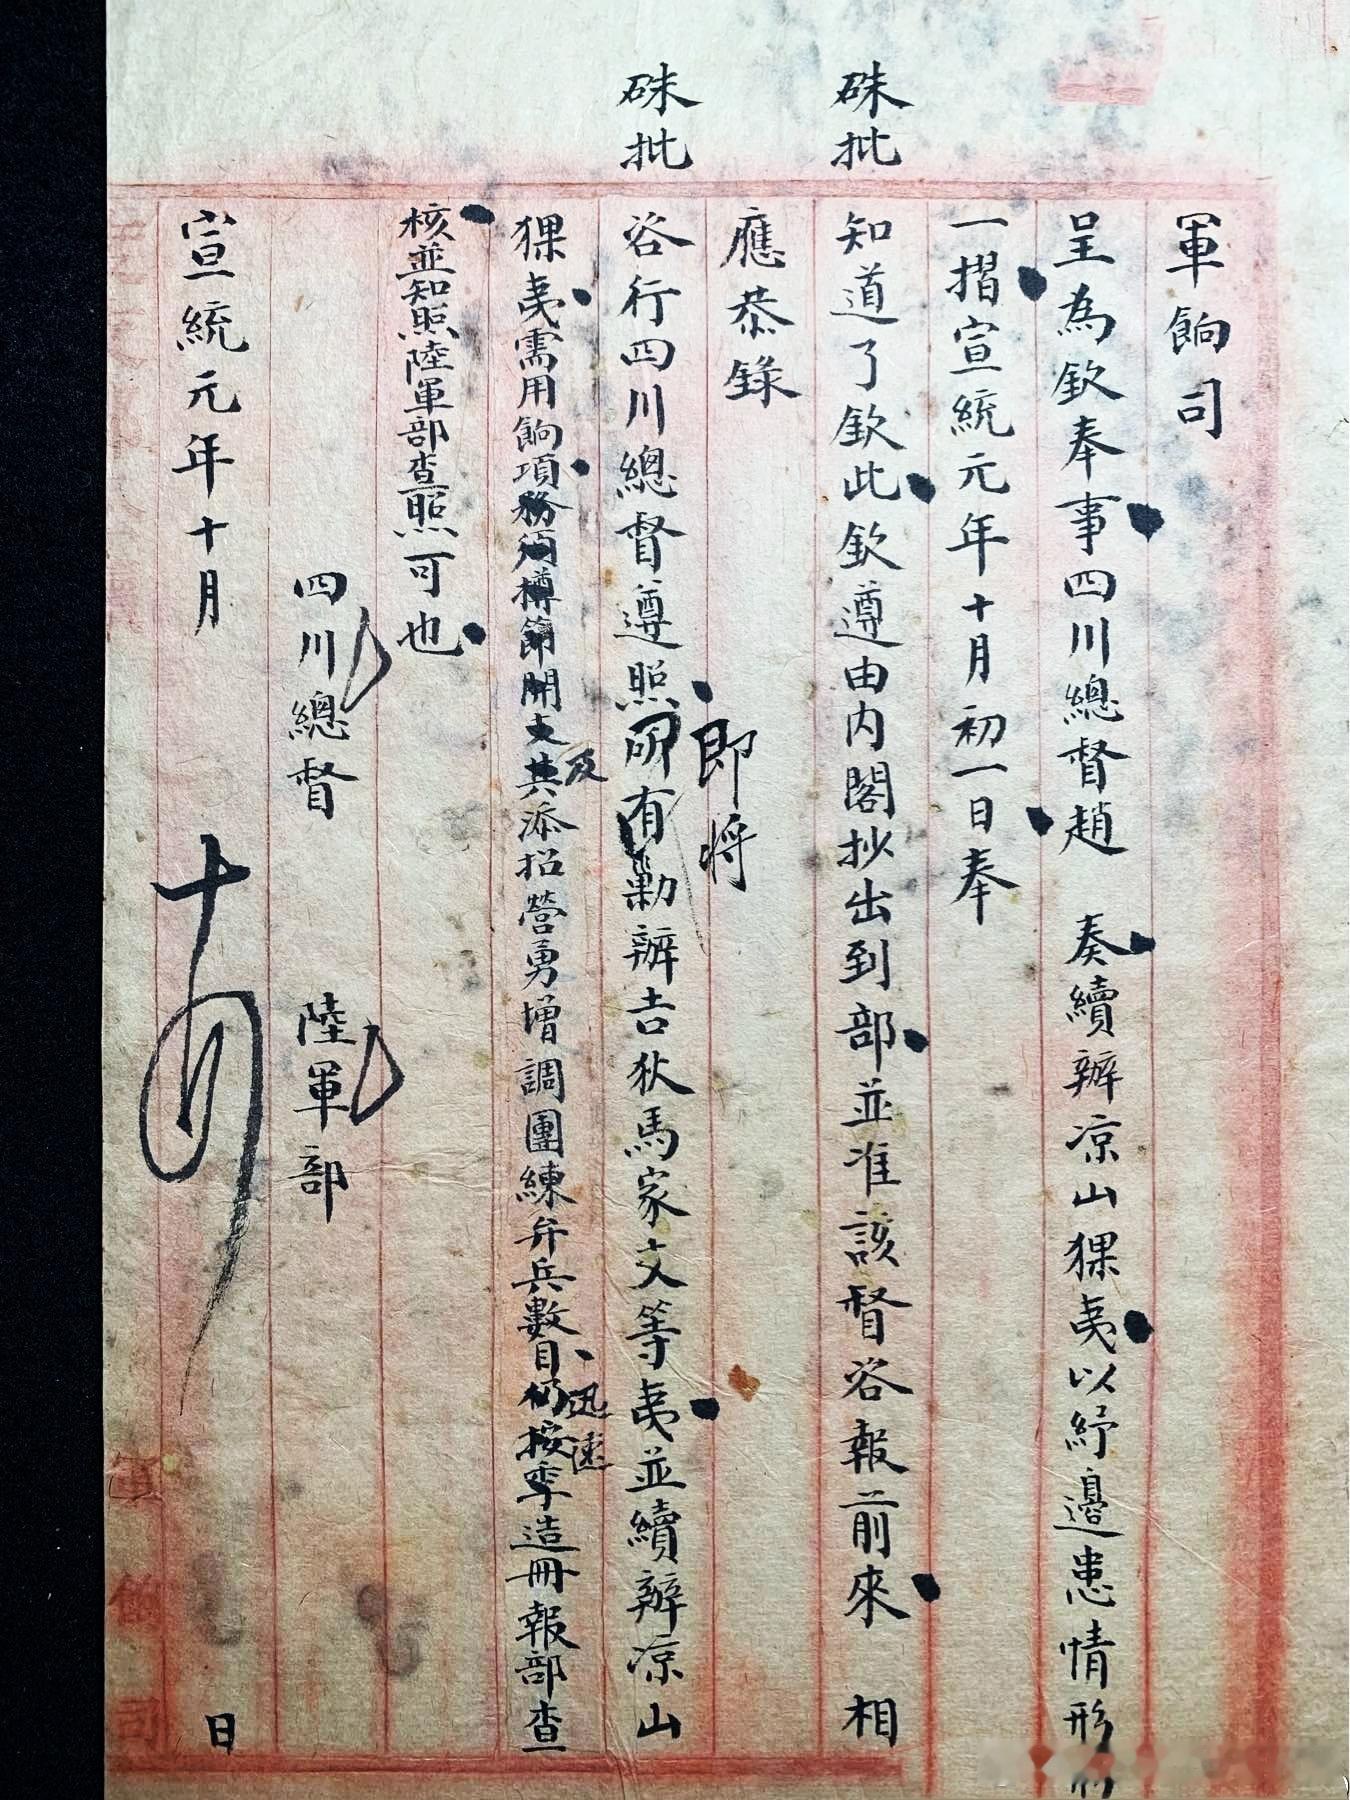 軍餉司
呈為欽奉事四川總督趙 奏續辦涼山猓夷以紓邊患情形
一摺宣統元年十月初一日奉
硃批
知道了欽此欽遵由內閣抄出到部並准該督咨報前來 相
應恭錄
硃批
咨行四川總督遵照所有勦辦吉狄馬家支等夷並續辦涼山
即將
猓夷需用餉項務須樽節開支其添招營勇增調團練弁兵數目仍按季造冊報部查
及
迅速
核並知照陸軍部查照可也
四川總督 陸軍部
宣統元年十月 日
十